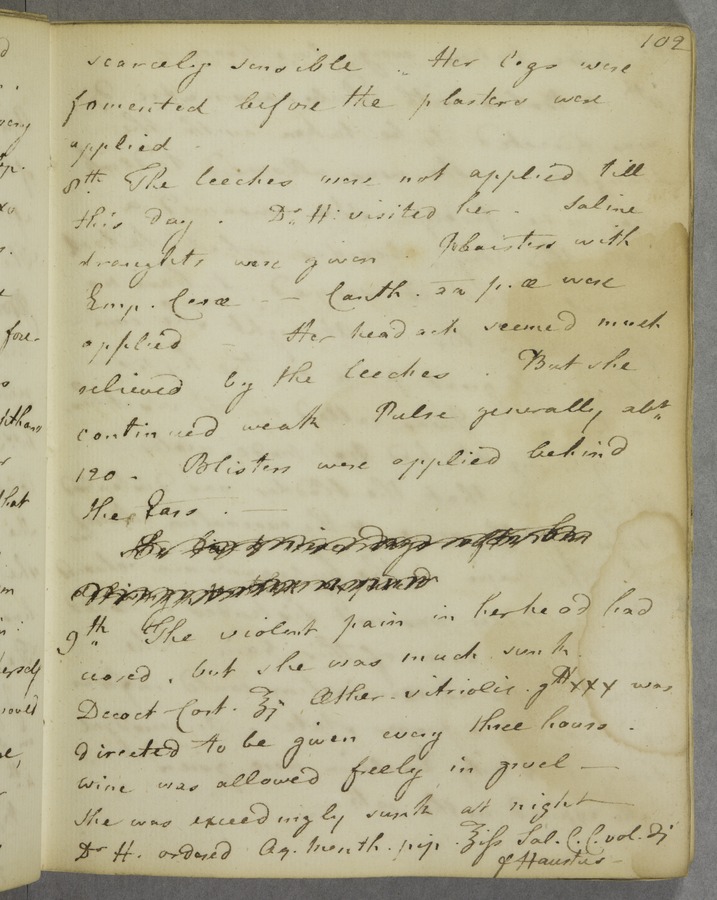 102
scarcely sensible. Her legs were
fomented before the plasters were
applied.
8th. The leeches were not applied till
this day. Dr. H. visited her. Saline
draughts were given. Plaisters with
Emp. Ceræ — Canth. aa p. æ were
applied — Her head ach seemed much
relieved by the leeches. But she
continued weak Pulse generally abt.
120. Blisters were applied behind
the Ears. —
9th. The violent pain in her head had
ceased, but she was much sunk.
Decoct. Cort. ʒj Æther. vitriolic. gtt xxx was
directed to be given every three hours.
wine was allowed freely in gruel —
She was exceedingly sunk at night
Dr H. ordered Aq. menth. pip. ʒiſs Sal. C.C. vol. ℈j
f Haustus —